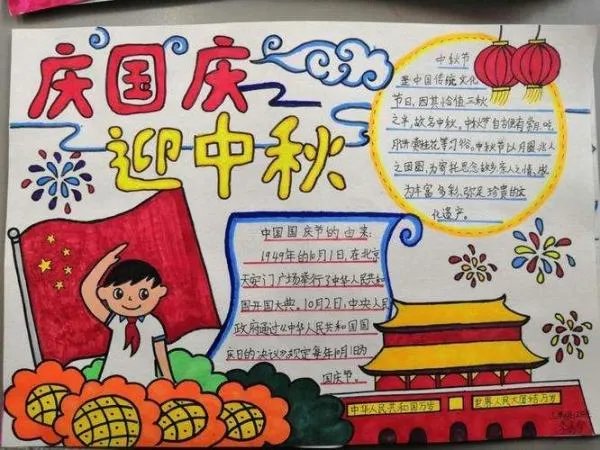 庆国庆
迎中秋
中秋节
是中国传统文化
节日,因其恰值三秋
之半,故名中秋。中秋节自古便有赏月、吃
月饼、赏桂花等习俗。中秋节以月圆兆人
之团圆,为寄托思念故乡,亲人之情,成
为丰富多彩,弥足珍贵的文
化遗产。
中国国庆节的由来:
1949年的10月1日,在北京
天安门广场举行了中华人民共和
国开国大典。10月2日,中央人民
政府通过《中华人民共和国国
庆日的决议》规定每年10月1日为
国庆节。
中华人民共和国万岁
世界人民大团结万岁